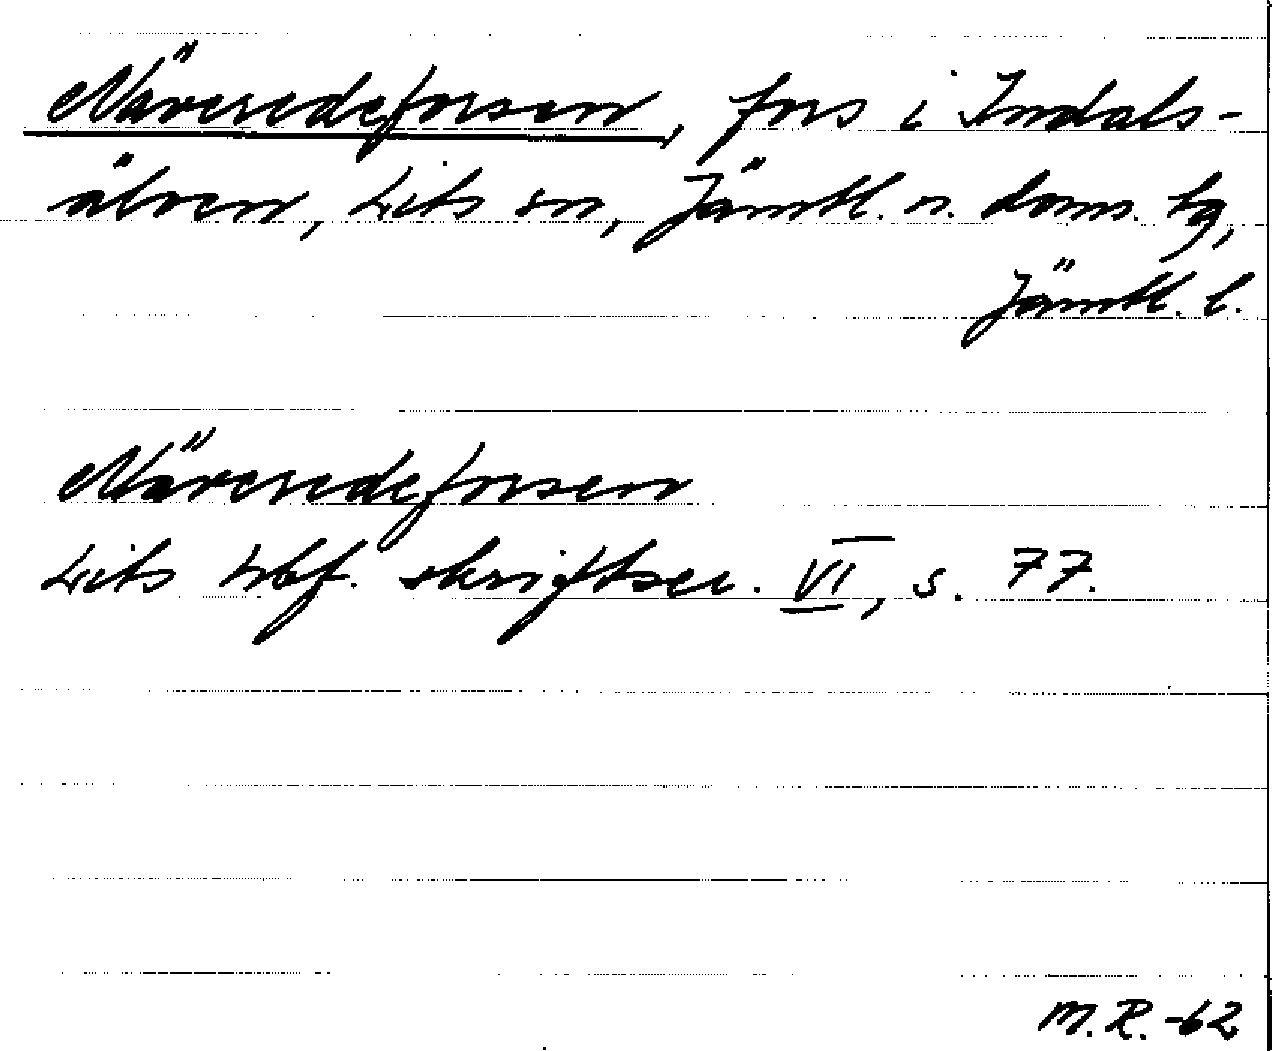 Näveredeforsen, fors i Indals-
älven, Lits sn, Jämtl. n. doms. tg,
Jämtl. l.
Näveredeforsen
Lits hbf. skriftser. VI, s. 77.
M.R.-62